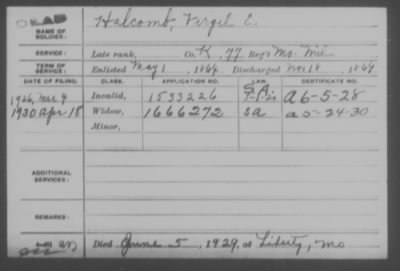 DEAD
NAME OF SOLDIER: Halcomb, Virgil C.
SERVICE: Late rank, Co. K, 77 Reg't Mo. Mil
TERM OF SERVICE: Enlisted May 1, 1864, Discharged Nov 18, 1864
DATE OF FILING. CLASS. APPLICATION NO. LAW. CERTIFICATE NO.
1926, Mr 4 Invalid, 1533226 S.A. A 6-5-28
1930 Apr 18 Widow, 1666272 SA A 5-24-30
Minor,
ADDITIONAL SERVICES:
REMARKS:
Died June 5, 1929, at Liberty, Mo